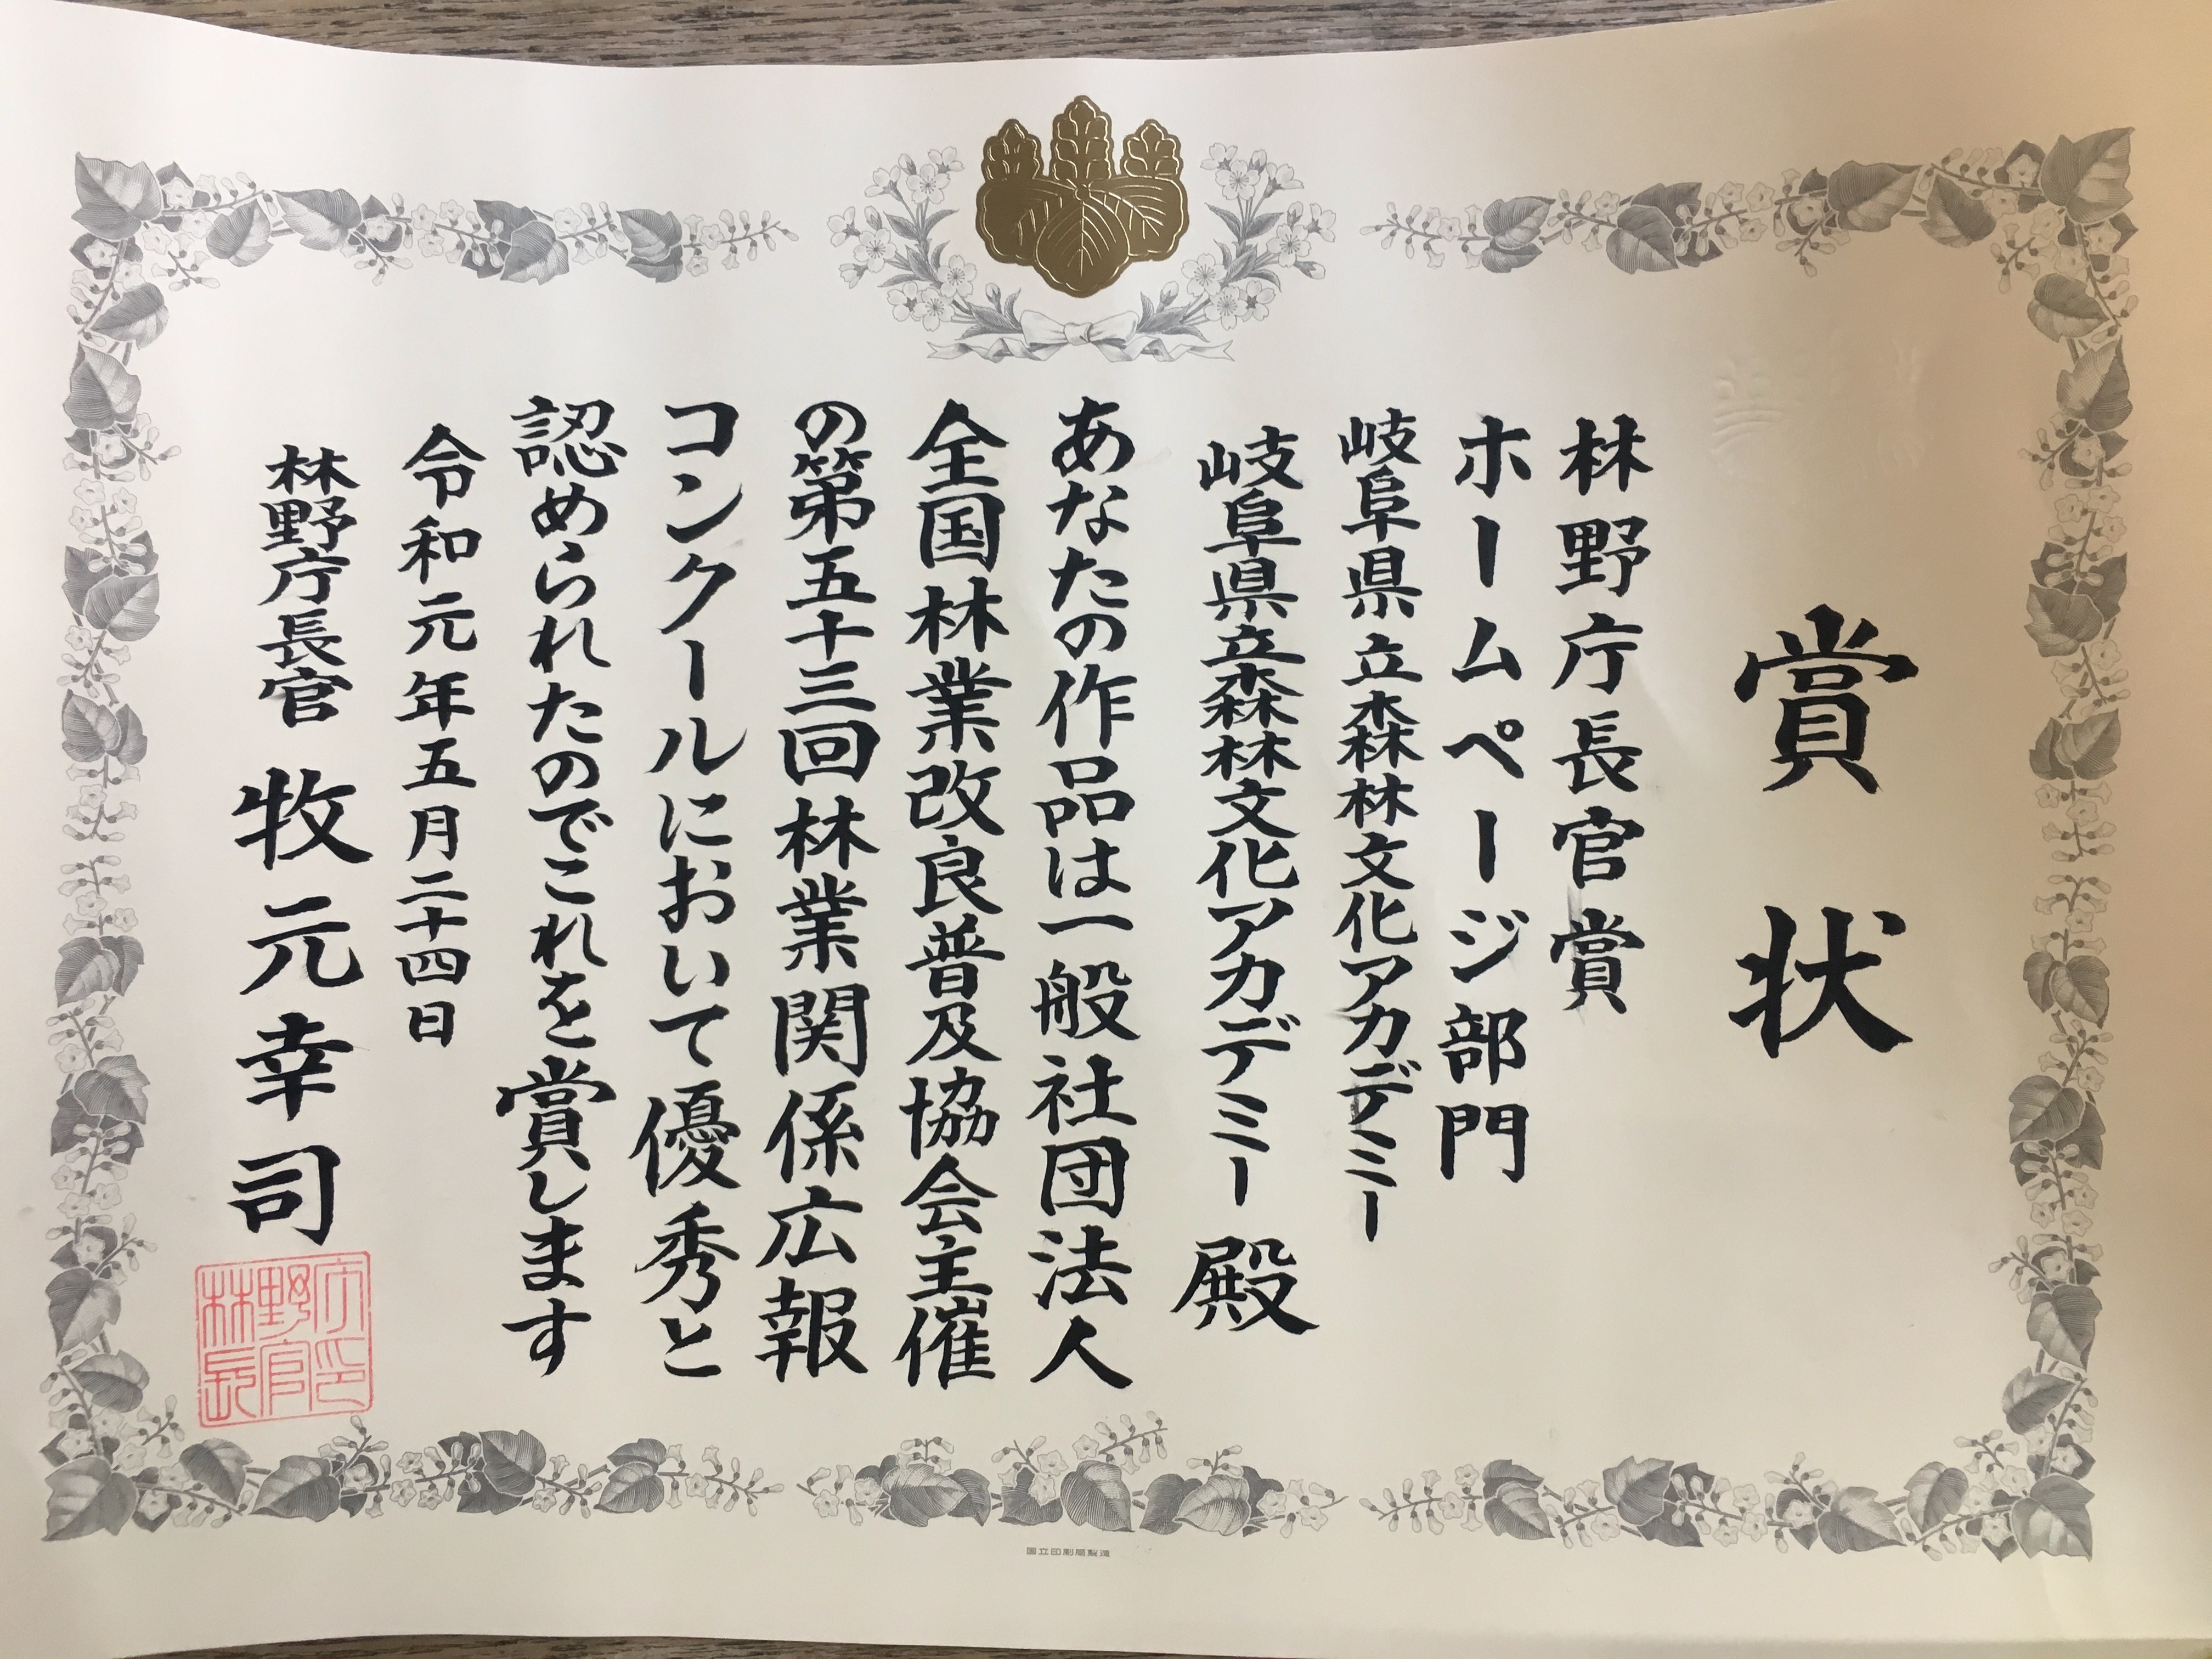 賞状
林野庁長官賞
ホームページ部門
岐阜県立森林文化アカデミー
岐阜県立森林文化アカデミー 殿
あなたの作品は一般社団法人
全国林業改良普及協会主催
の第五十三回林業関係広報
コンクールにおいて優秀と
認められたのでこれを賞します
令和元年五月二十四日
林野庁長官 牧元幸司
林野庁長官印
国立印刷局製造